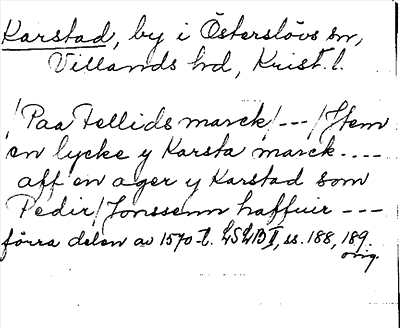 Karstad, by i Österslövs sn,
Villands hd, Krist. l.
/Paa Fellids marck/ --- / Jtem
en lycke y Karsta marck ----
aff en ager y Karstad som
Pedir / Jonssenn haffuir ---
förra delen av 1570-t. LSLB I, ss. 188, 189.
orig.